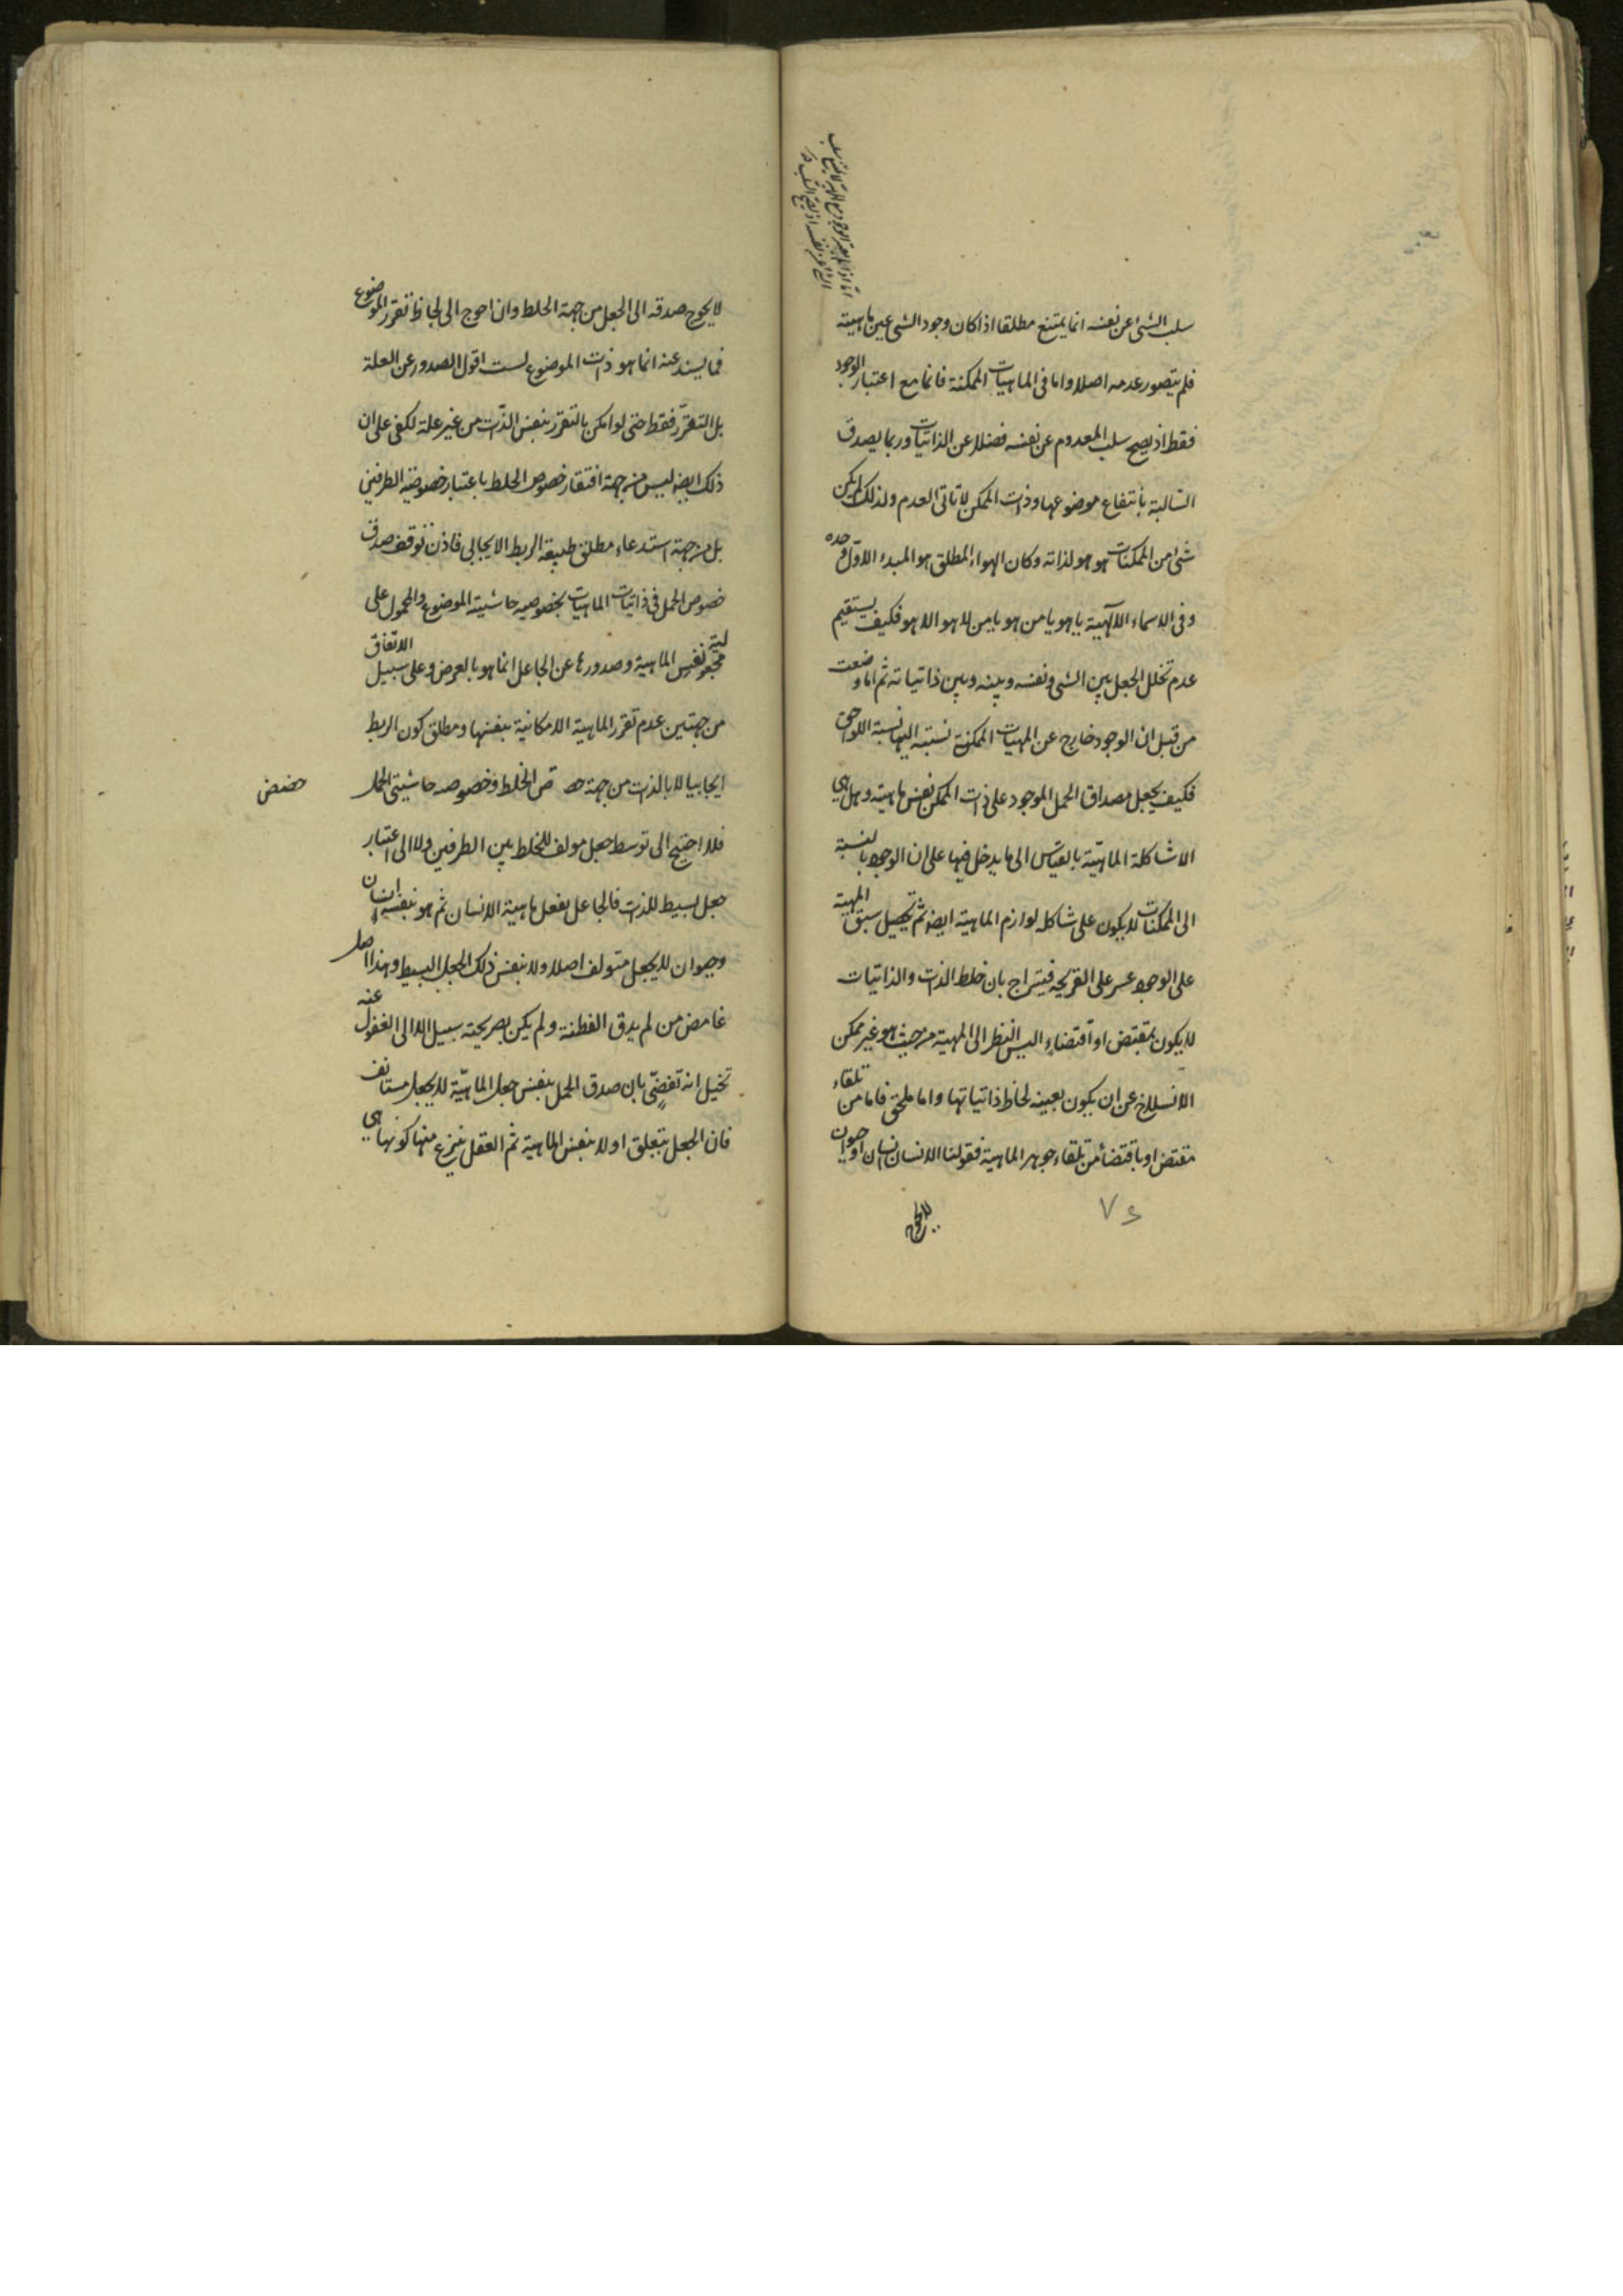 سلب الشئ عن نفسه انما يمتنع مطلقا اذا كان وجود الشئ عين ماهيته
فلم يتصور عدمه اصلا واما فى الماهيات الممكنة فانما مع اعتبار الوجود
فقط اذ يصح سلب المعدوم عن نفسه فضلا عن الذاتيات وربما يصدق
السالبة بانتفاع موضوعها وذات الممكن لا تاتى العدم ولذلك لم يكن
شئ من الممكنات هو هو لذاته وكان الهواء المطلق هو المبدء الاول وحده
وفى الاسماء الالهية يا هو يا من هو يا من لا هو الا هو فكيف يستقيم
عدم تخلل الجعل بين الشئ ونفسه وبينه وبين ذاتياته ثم اما وضعت
من قبل ان الوجود خارج عن المهيات الممكنة نسبته اليها نسبة اللواحق
فكيف يجعل مصداق الحمل الموجود على ذات الممكن نفس ماهيته وهل هى
الا شاكلة الماهية بالقياس الى ما يدخل فيها على ان الوجود بالنسبة
الى الممكنات لا يكون على شاكله لوازم الماهية ايضا ثم تحصيل سبق المهية
على الوجود عسر على القريحه فيتراج بان خلط الذات والذاتيات
لا يكون بمقتض او اقتضاء اليس النظر الى المهية من حيث هو غير ممكن
الانسلاخ عن ان يكون بعينه لحاظ ذاتياتها واما ملحق فاما من تلقاء
مقتض او باقتضاء من تلقاء جوهر الماهية فقولنا الانسان انسان او حيوان
لا يحوج
٧٤
لا يحوج صدقه الى الجعل من جهة الخلط وان احوج الى لحاظ تقرر الموضوع
فما يستند عنه انما هو ذات الموضوع لست اقول الصدور عن العلة
بل التقرر فقط حتى لو امكن بالتقرر بنفس الذات من غير علة لكفى على ان
ذلك ايضا ليس من جهة افتقار خصوص الخلط باعتبار خصوصية الطرفين
بل من جهة استدعاء مطلق طبيعة الربط الايجابى فاذن توقف صدق
خصوص الحمل فى ذاتيات الماهيات بخصوصيه حاشيته الموضوع والمحمول على
مجعولية نفس الماهية وصدورها عن الجاعل انما هو بالعرض وعلى سبيل الاتفاق
من جهتين عدم تقرر الماهية الامكانية بنفسها ومطلق كون الربط
ايجابيا لا بالذات من جهة الخلط وخصوصه حاشيتى الحمل
فلا احتيج الى توسط جعل مولف للخلط بين الطرفين ولا الى اعتبار
جعل بسيط للذات فالجاعل يفعل ماهية الانسان ثم هو بنفسه انسان
وحيوان لا بجعل متولف اصلا ولا بنفس ذلك الجعل البسيط وهذا اصل
غامض من لم يدق الفطنة ولم يكن بصريحته سبيل الا الى الغفول عنه
تخيل انه تفصّى بان صدق الحمل بنفس جعل الماهية لا بجعل مستانف
فان الجعل يتعلق اولا بنفس الماهية ثم العقل ينزع منها كونها هى